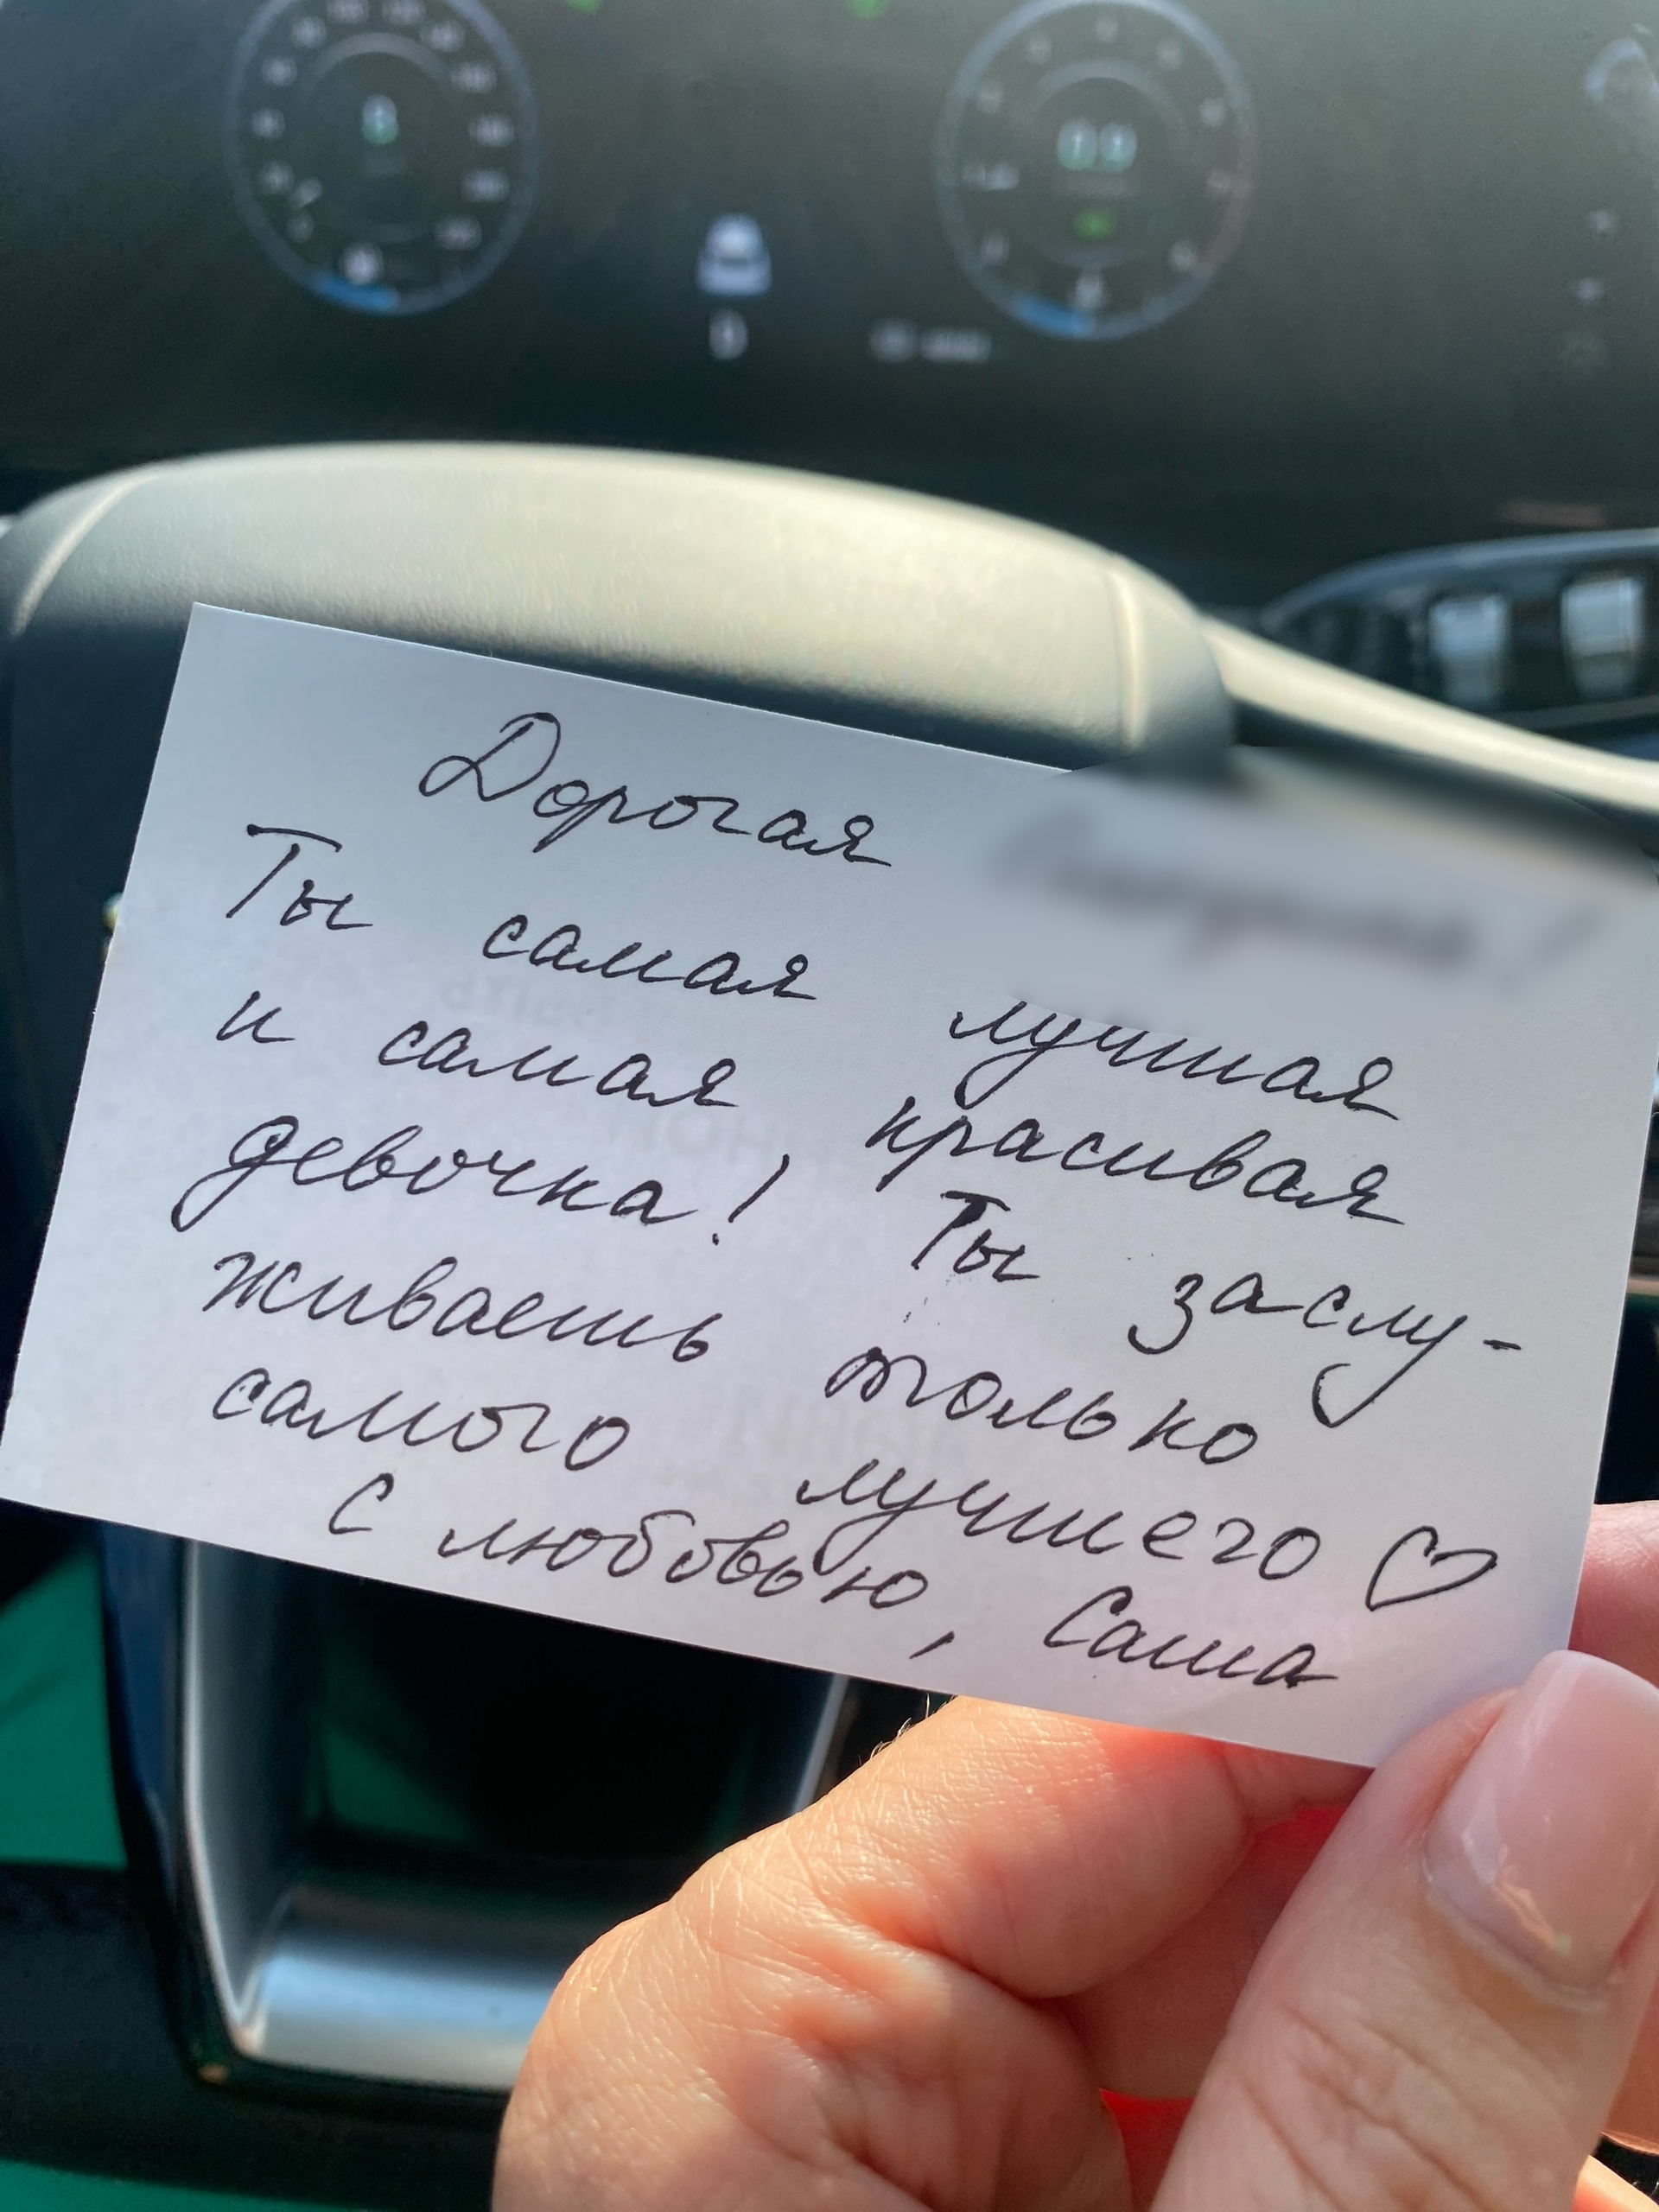 Дорогая
Ты самая лучшая
и самая красивая
девочка! Ты заслу-
живаешь только
самого лучшего ♡
С любовью, Саша